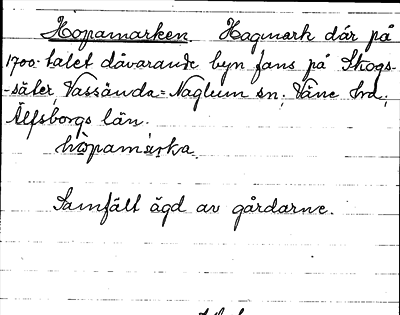 Hopamarken. Hagmark där på
1700-talet dåvarande byn fans på Skogs-
-säter, Vassända-Naglum sn; Väne hd;
Älfsborgs län.
hòpamárka.
Samfält ägd av gårdarne.